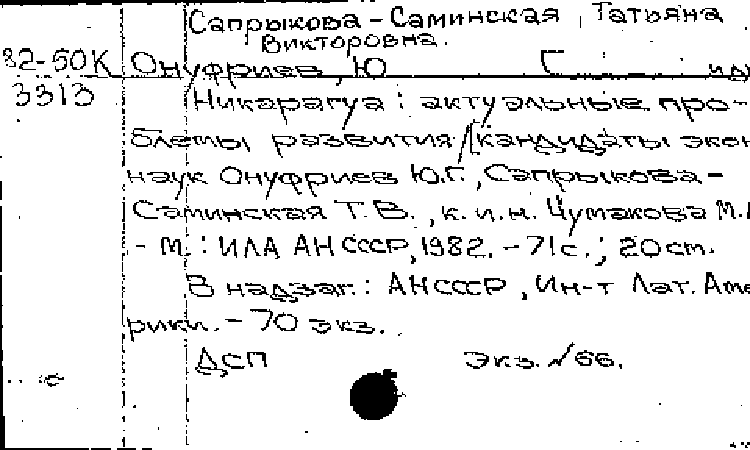 Сапрыкова-Саминская, Татьяна
Викторовна.
82-50К Онуфриев, Ю
3313 Никарагуа: актуальные про-
блемы развития /кандидаты экон
наук Онуфриев Ю.Г., Сапрыкова-
Саминская Т.В., к.и.н. Чумакова М.
- М.: ИЛА АН СССР, 1982. - 71 с.; 20 см.
В надзаг.: АН СССР, Ин-т Лат. Аме
рики. - 70 экз.
ДСП Экз. №66.